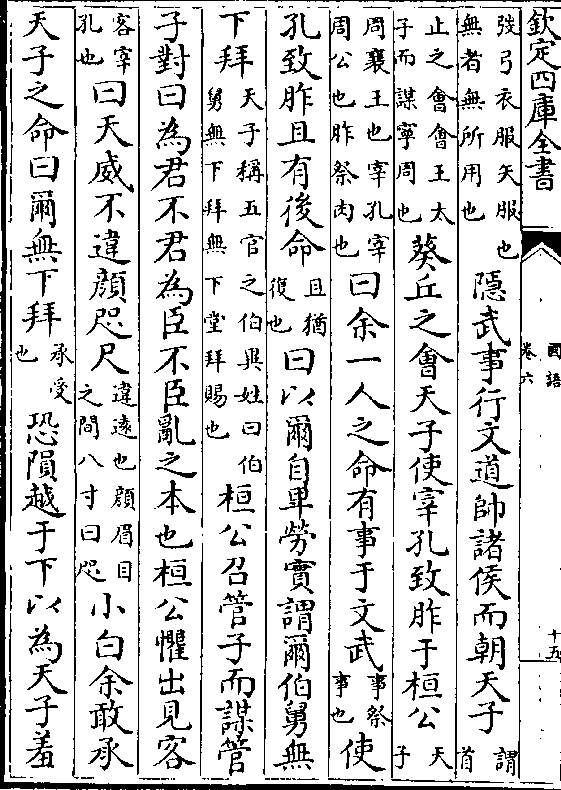 欽定四庫全書
國語
卷六
十五
弢弓衣服矢服也無者無所用也隱武事行文道帥諸侯而朝天子謂首
止之會會王太子而謀寧周也葵丘之會天子使宰孔致胙于桓公天子
周襄王也宰孔宰周公也胙祭肉也曰余一人之命有事于文武事祭事也使
孔致胙且有後命且猶復也曰以爾自卑勞實謂爾伯舅無
下拜天子稱五官之伯異姓曰伯舅無下拜無下堂拜賜也桓公召管子而謀管
子對曰為君不君為臣不臣亂之本也桓公懼出見客
客宰孔也曰天威不違顏咫尺違遠也顏眉目之間八寸曰咫小白余敢承
天子之命曰爾無下拜承受也恐隕越于下以為天子羞